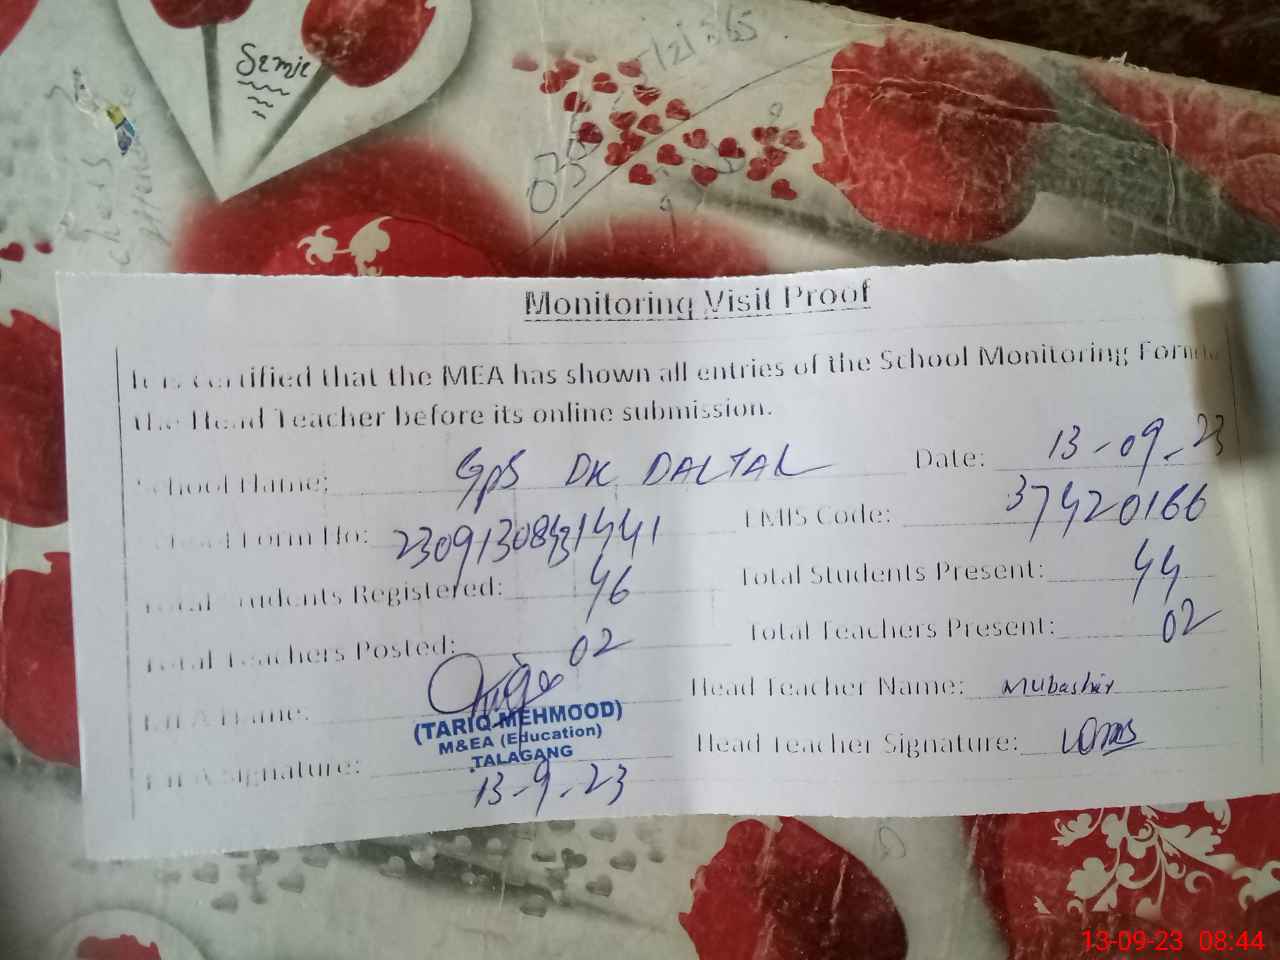 Semie
Monitoring Visit Proof
It is certified that the MEA has shown all entries of the School Monitoring Form to
the Head Teacher before its online submission.
School Name: GPS DK DALTAL Date: 13-09-23
School Form No: EMIS Code: 37420166
Total Students Registered: 46 Total Students Present: 44
Total Teachers Posted: 02 Total Teachers Present: 02
MEA Name: Head Teacher Name: Mubashir
(TARIQ MEHMOOD)
M&EA (Education)
TALAGANG
MEA Signature: Head Teacher Signature:
13-9-23
13-09-23 08:44